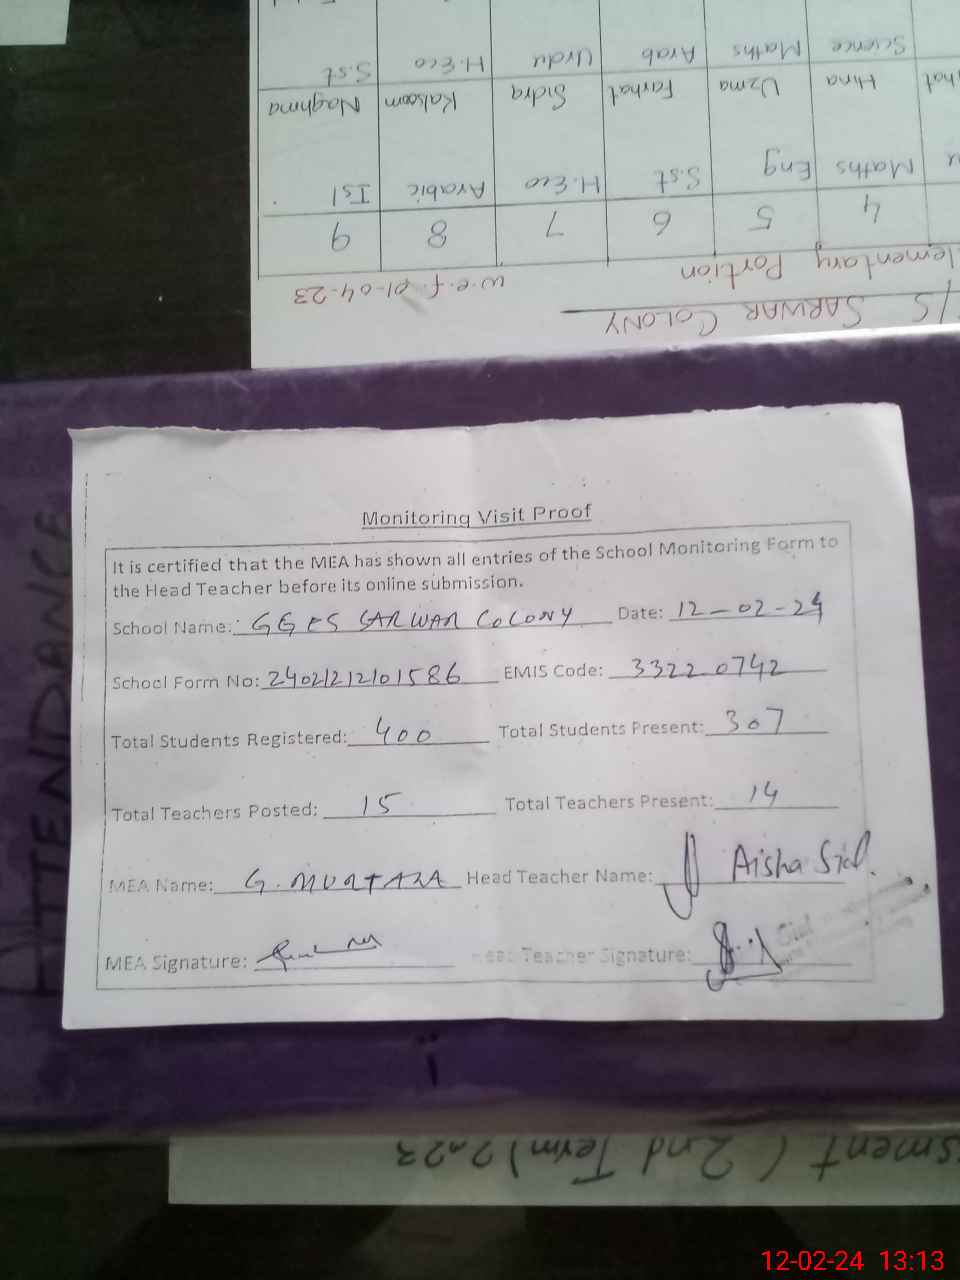 S.st H.Eco Urdu Arab Maths Science
Naghma Kalsoom Sidra Farhat Uzma Hina hat
Isl Arabic H.Eco S.st Eng Maths
9 8 7 6 5 4
w.e.f. 01-04-23 lementary Portion
SARWAR COLONY
ATTENDANCE
Monitoring Visit Proof
It is certified that the MEA has shown all entries of the School Monitoring Form to
the Head Teacher before its online submission.
School Name: GGES SARWAR COLONY Date: 12-02-24
School Form No: 24021212101586 EMIS Code: 33220742
Total Students Registered: 400 Total Students Present: 307
Total Teachers Posted: 15 Total Teachers Present: 14
MEA Name: G. MURTAZA Head Teacher Name: Aisha Sial.
MEA Signature: Head Teacher Signature:
Sial
sment (2nd Term) 2023
12-02-24 13:13